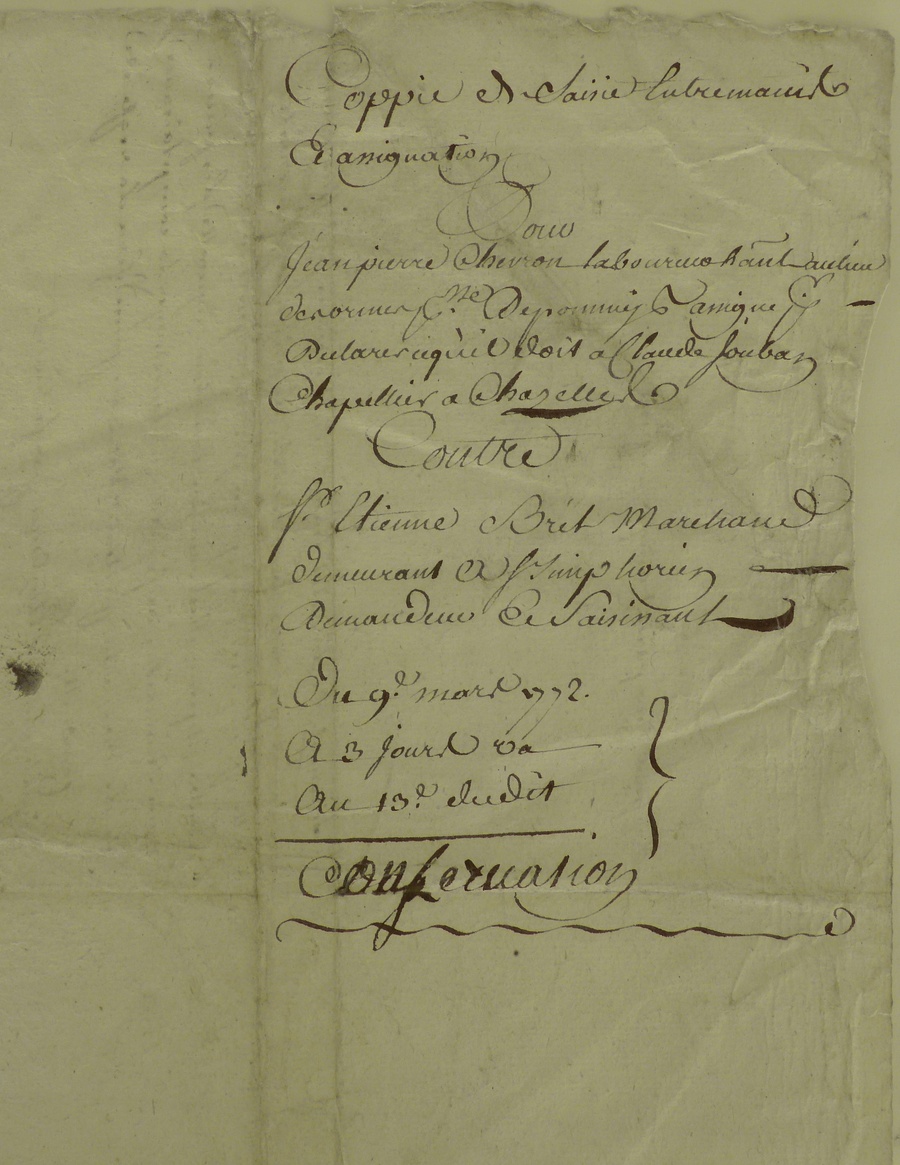 Coppie de Saisie Entremains
Et assignation
Pour
Jean pierre Chevron laboureur hant au lieu
des ormes psse De pommiés assigné
Dularer cequil doit a Claude Jouban
Chapellier a Chazelles
Contre
Sr Etienne Brét Marchand
demeurant a St Simphorien
Demandeur Et Saisissant
Du 9e mars 1772.
A 3 jours va
Au 13e dudit
Conservation